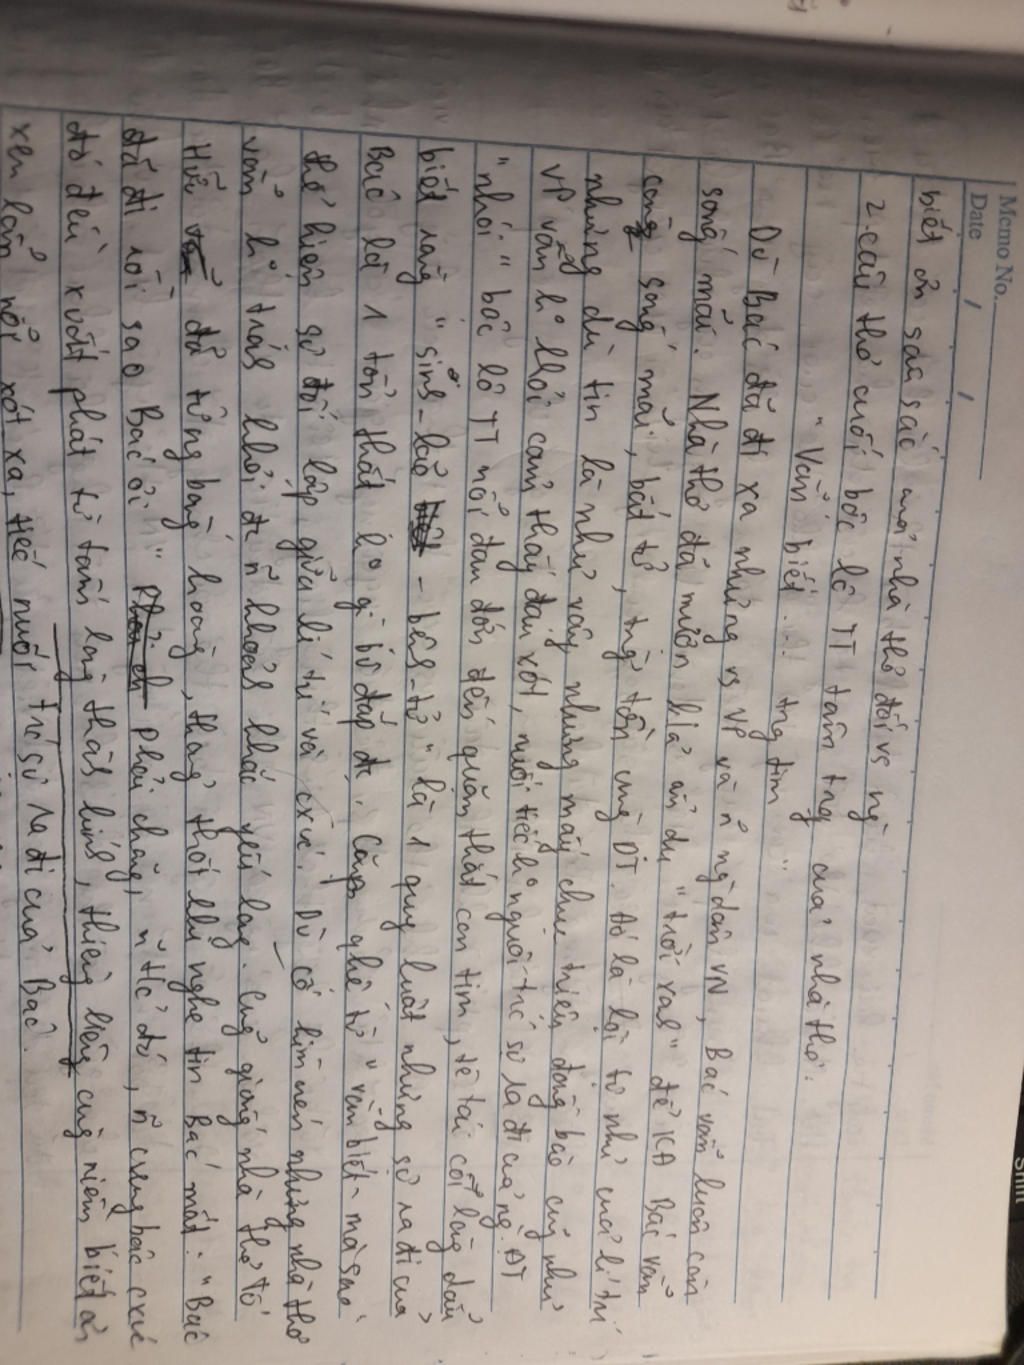 Memo No.
Date / /
biết ơn sâu sắc của nhà thơ đối vs ng`
2. câu thơ cuối bộc lộ TT tâm trạng của nhà thơ.
"Vẫn biết ... trg tim"
Dù Bác đã đi xa nhưng vs VP và ~ ng` dân VN, Bác vẫn luôn còn
sống mãi. Nhà thơ đã mượn h/ả ẩn dụ "trời xanh" để KĐ Bác vẫn
sống mãi, bất tử, trg` tồn cùng DT. Đó là lời tự nhủ của lí trí
nhưng dù tin là như vậy nhưng mấy chục triệu đồng bào cũng như
VP vẫn ko thôi cảm thấy đau xót, nuối tiếc ko nguôi trước sự ra đi của ng`. ĐT
"nhói" bộc lộ TT nỗi đau đớn đến quặn thắt con tim, tê tái cõi lòng dẫu
biết rằng "sinh-lão - bệnh-tử" là 1 quy luật nhưng sự ra đi của
Bác là 1 tổn thất ko gì bù đắp đc. Cặp qhệ từ "vẫn biết - mà sao"
thể hiện sự đối lập giữa lí trí và cxúc. Dù cố kìm nén nhưng nhà thơ
vẫn ko tránh khỏi đc ~ khoảnh khắc yếu lòng. Cũng giống nhà thơ Tố
Hữu đã từng bàng hoàng, thảng thốt khi nghe tin Bác mất: "Bác
đã đi rồi sao Bác ơi" phải chăng, ~ t/c đó, ~ cung bậc cxúc
đó đều xuất phát từ tấm lòng thành kính, thiêng liêng cùng niềm biết ơn
xen lẫn nỗi xót xa, tiếc nuối trc sự ra đi của Bác.